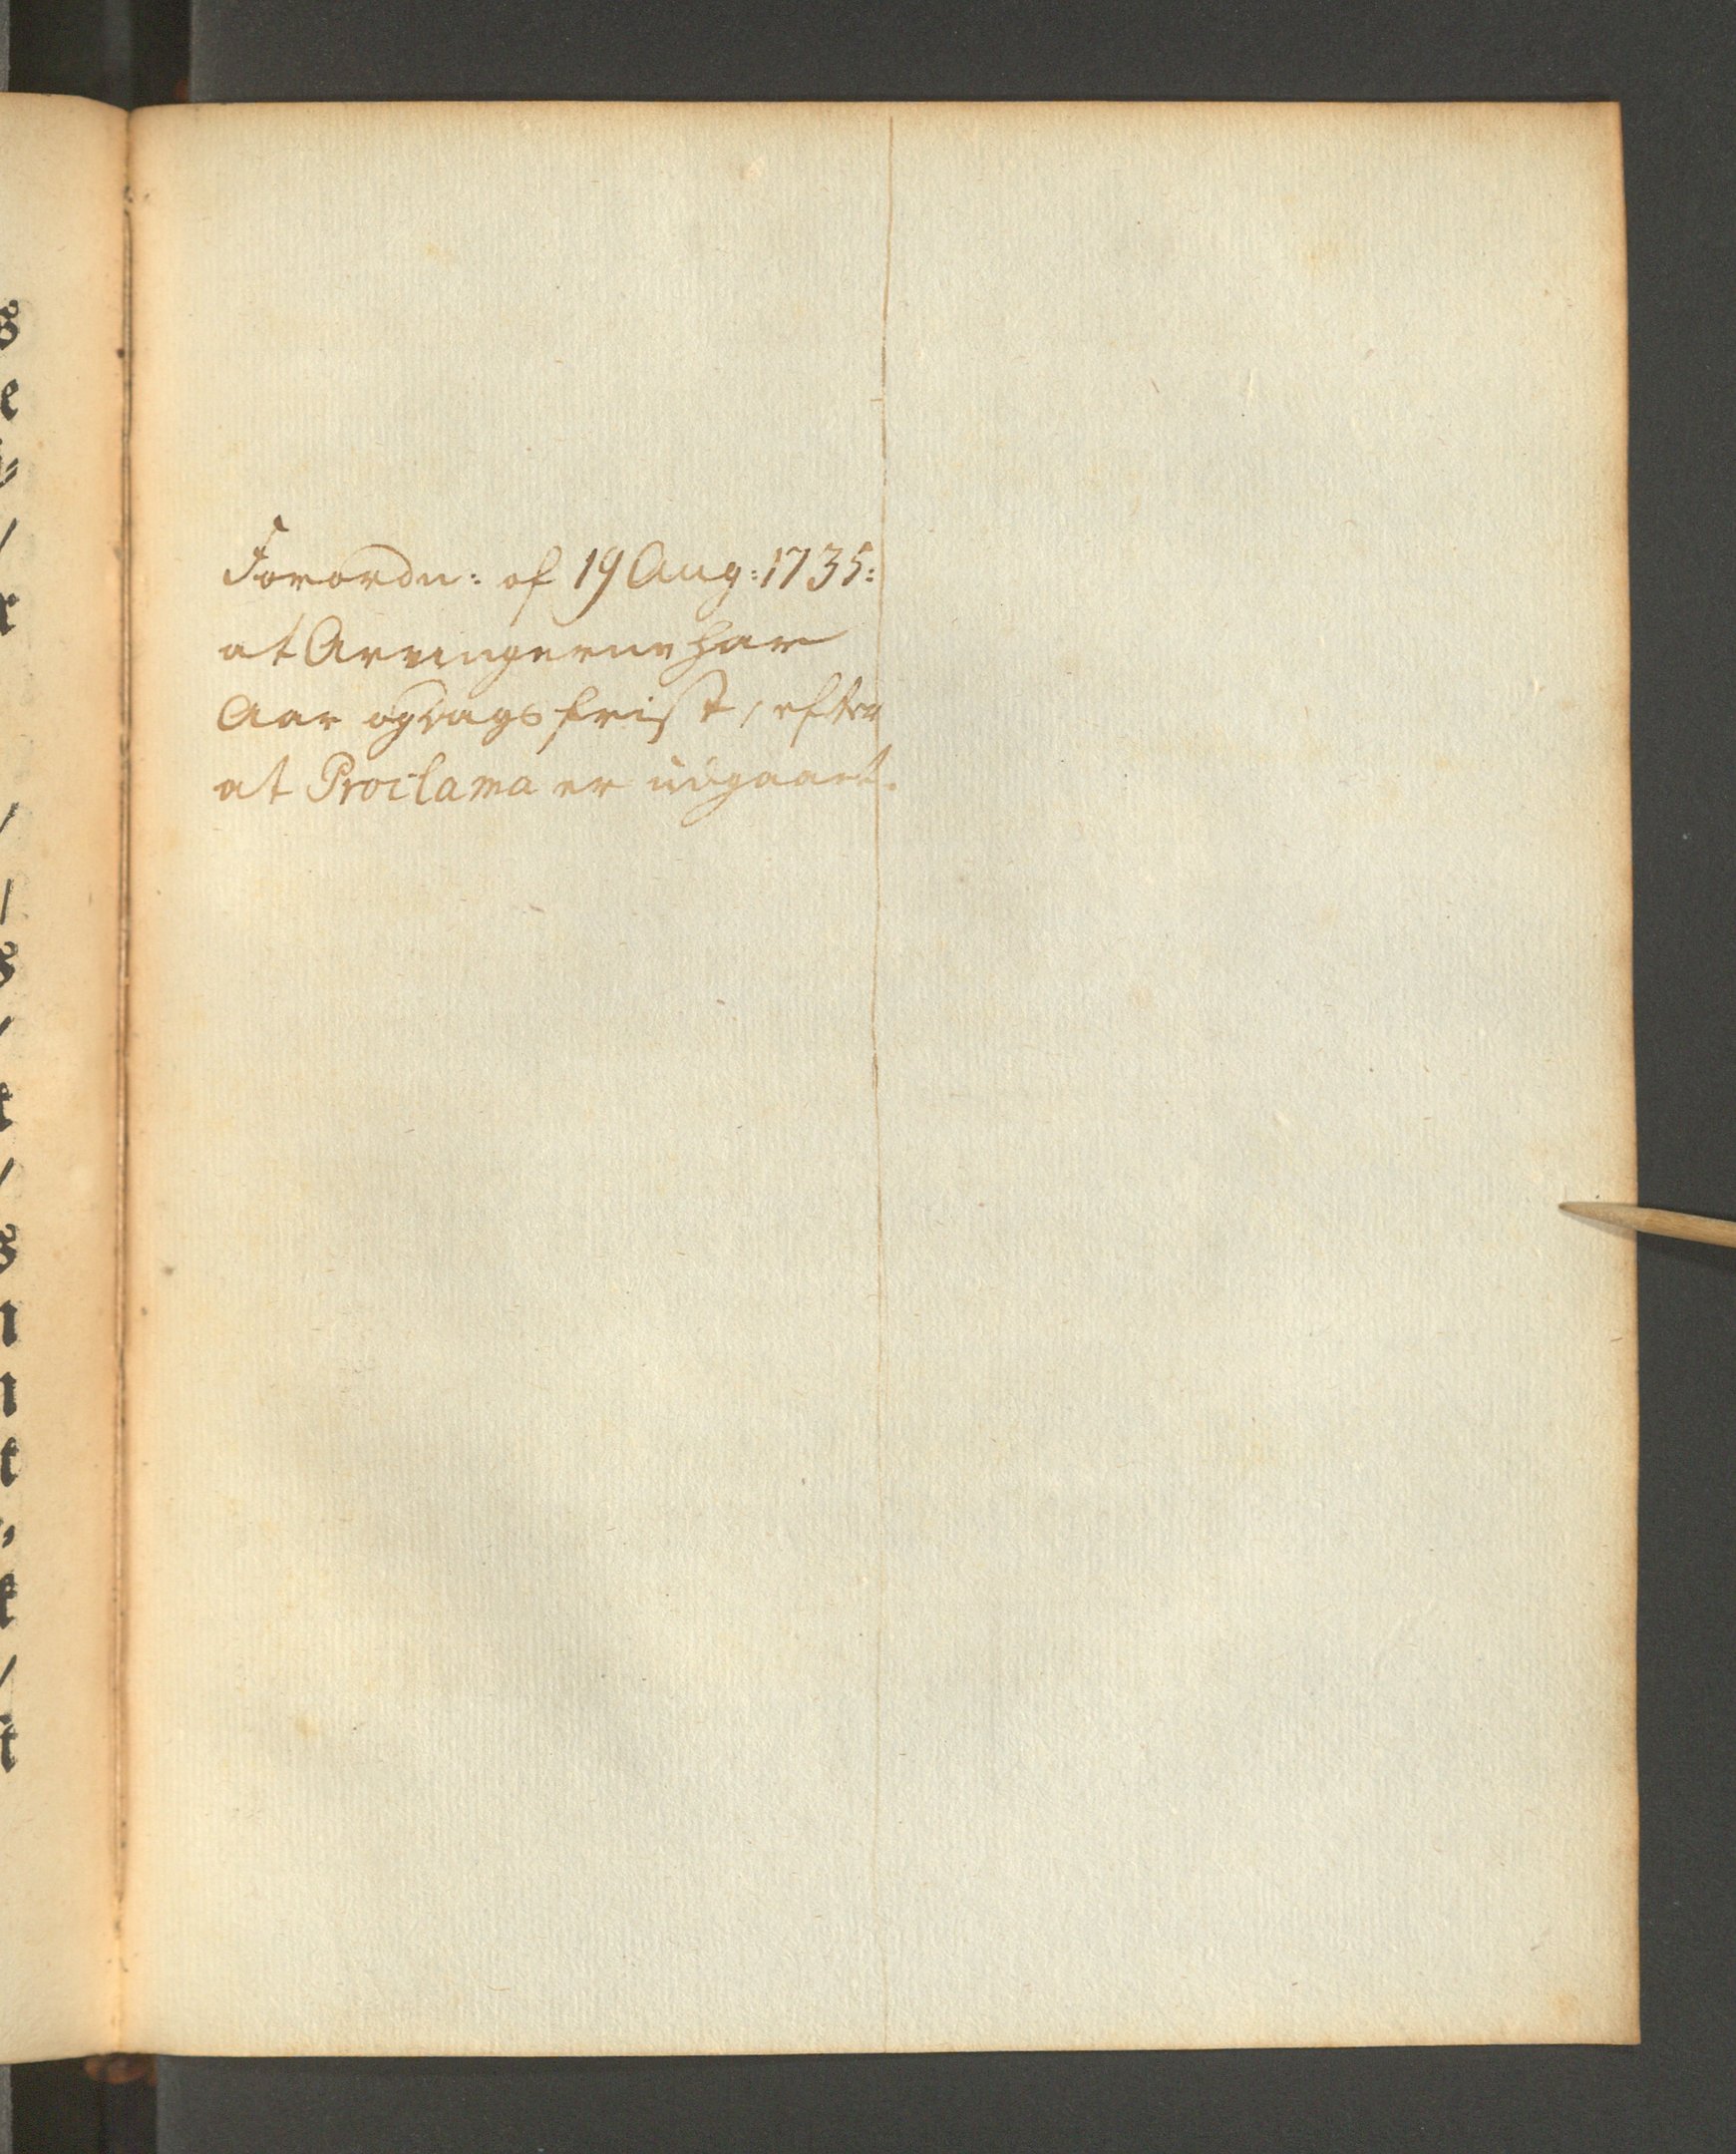 Forordn: af 19 Aug: 1735:
at Arvingerne har
Aar og dags frist, efter
at Proclama er udgaaet.